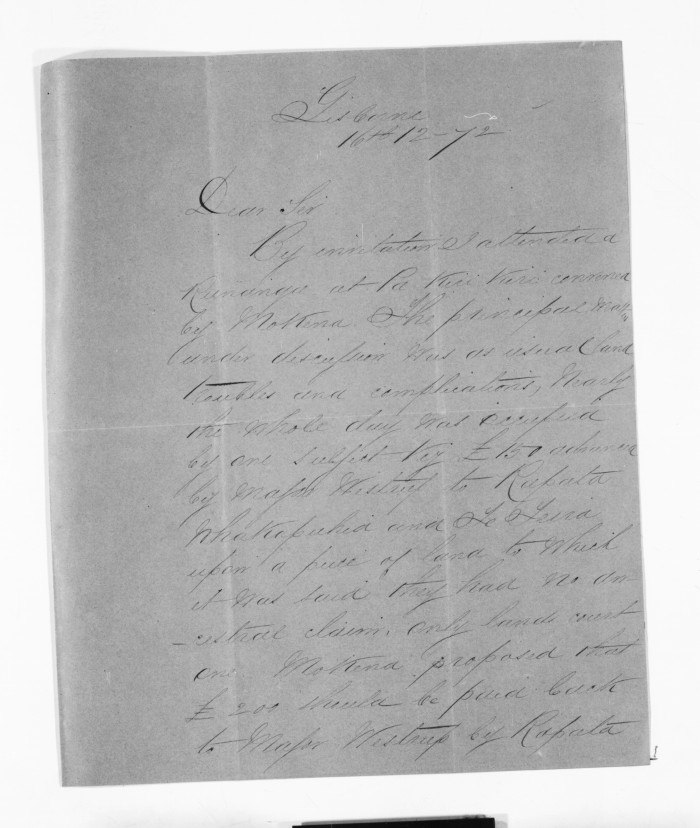 Gisborne
16th 12-72
Dear Sir
By invitation I attended a
Runanga at Pa Kiri Kiri convened
by Mokena The principal matter
under discussion was as usual land
troubles and complications, Nearly
the whole day was occupied
by one subject viz £150 advanced
by Major Westrup to Rapata
Whakapuhia and Te
upon a piece of land to which
it was said they had no an-
-cestral claim, only land court
one Mokena proposed that
£200 should be paid back
to Major Westrup by Rapata